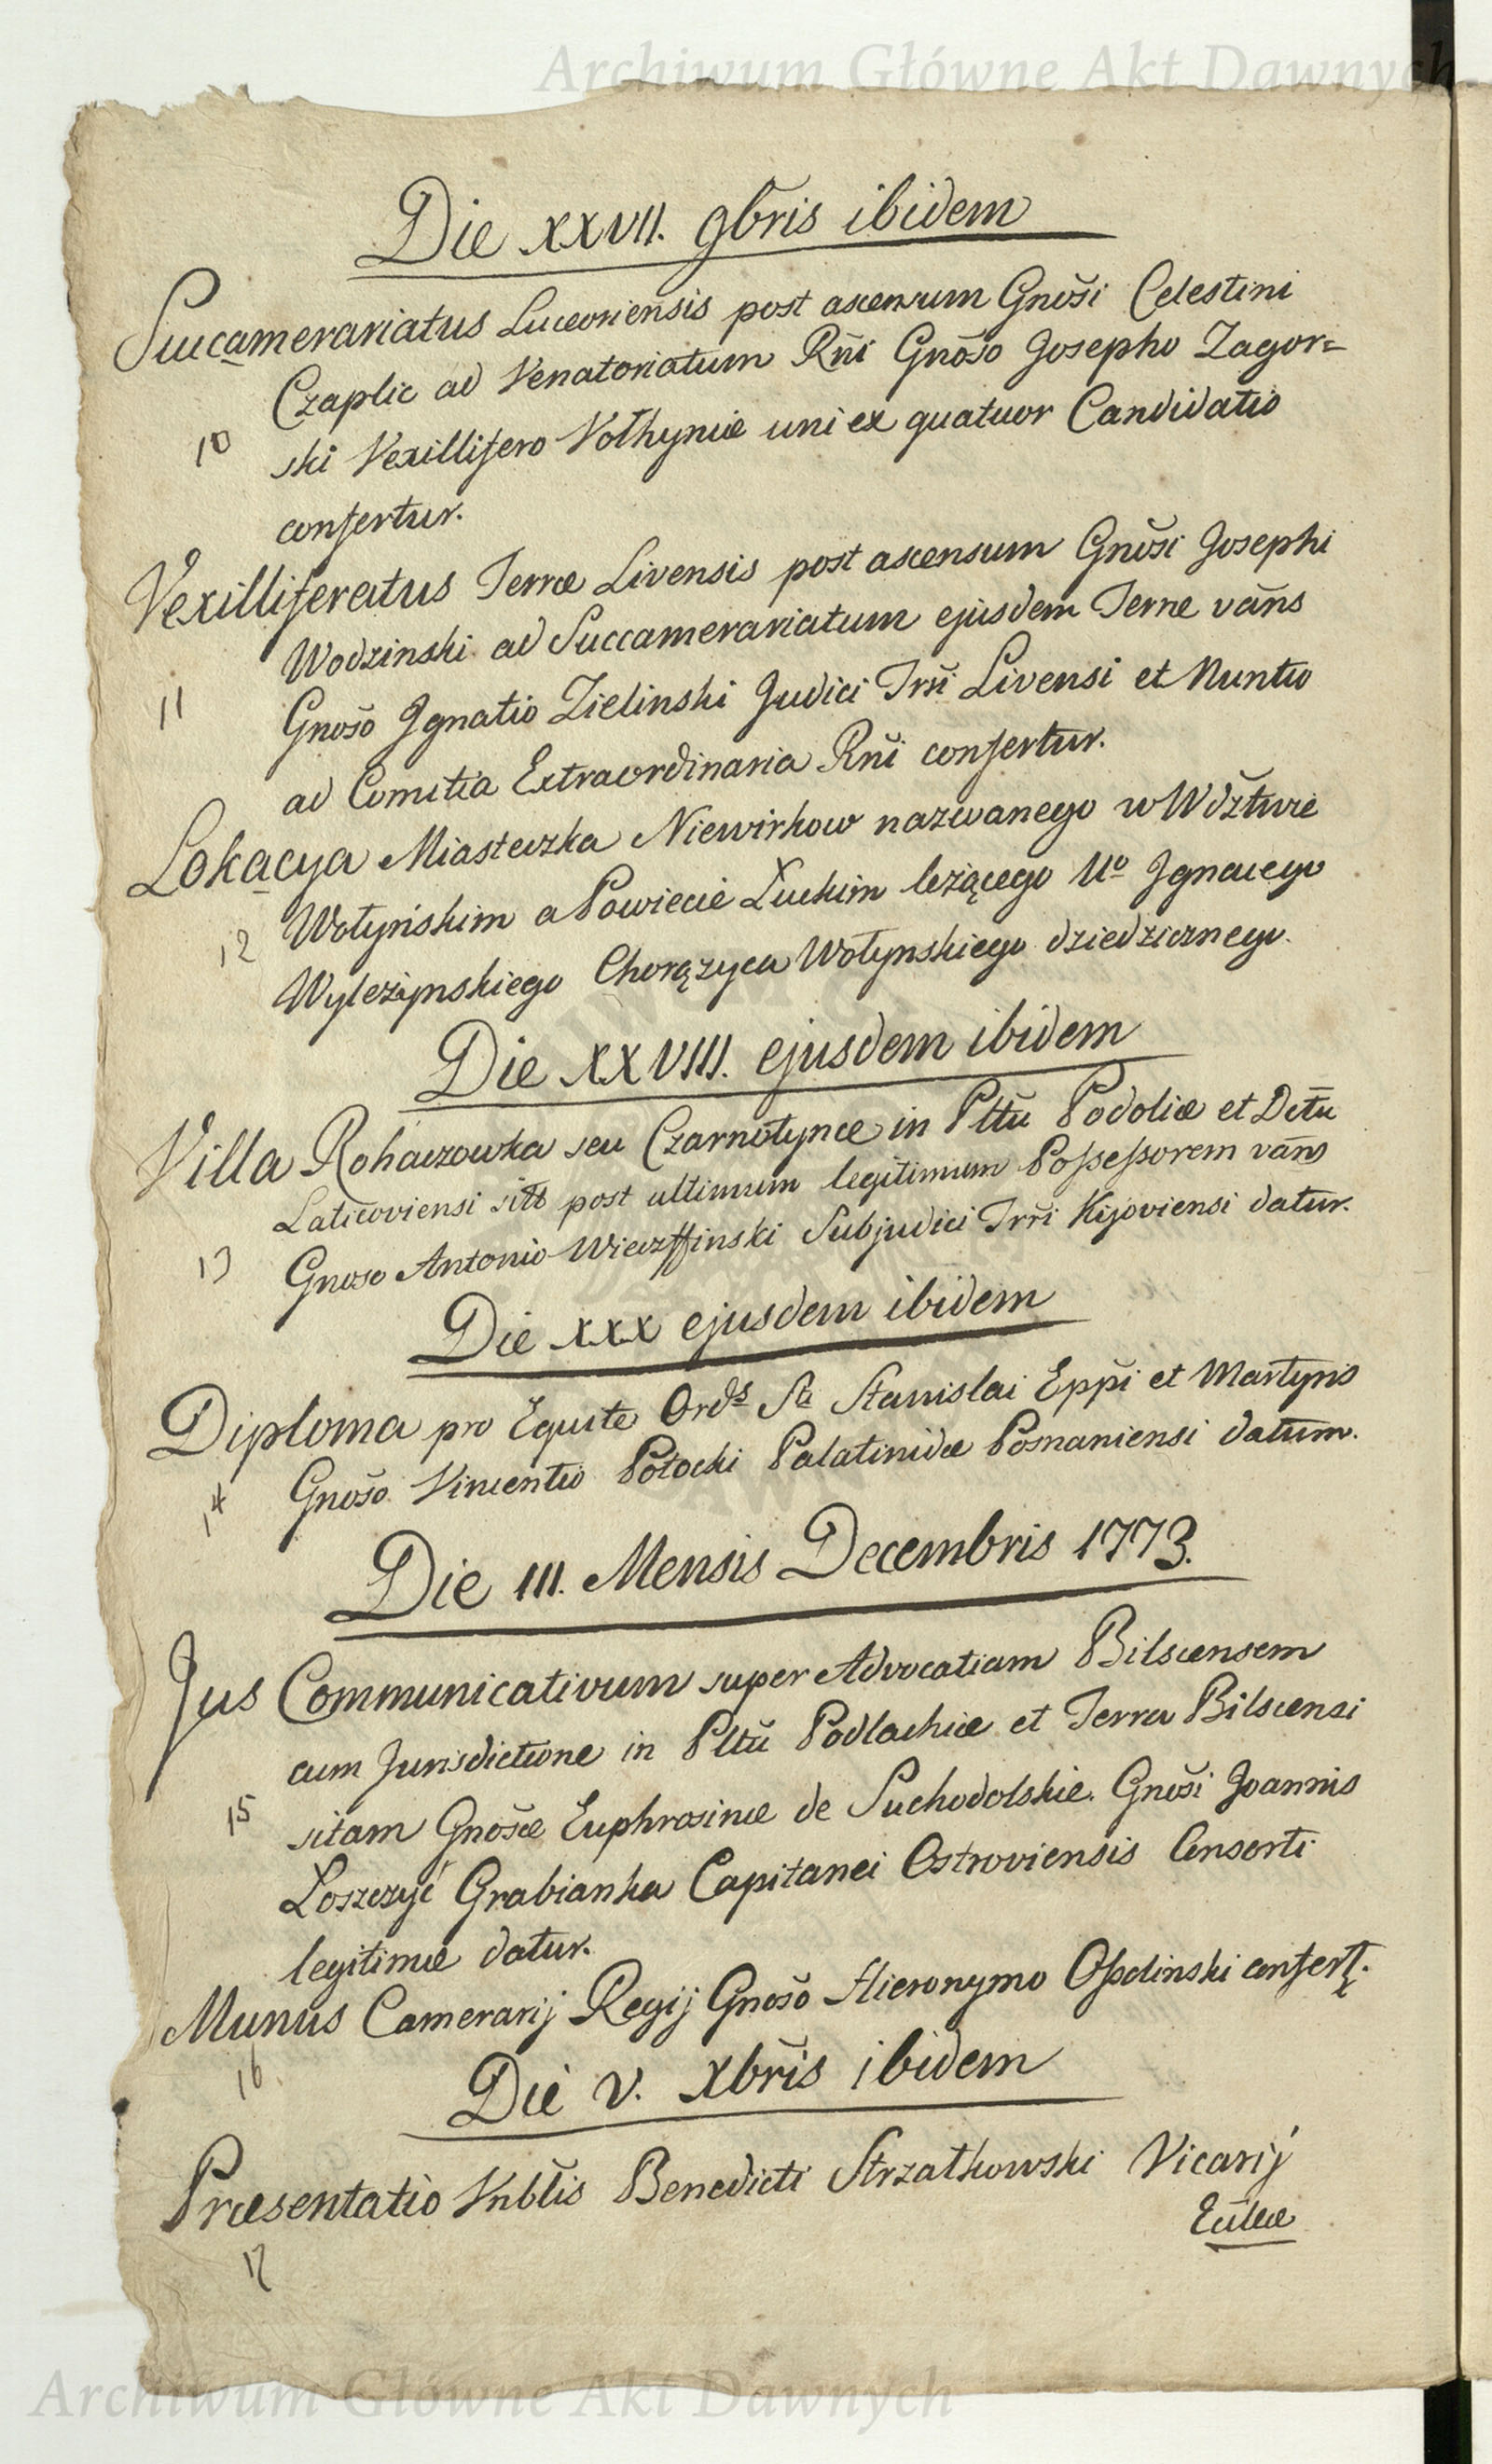 Archiwum Główne Akt Dawnych
Die XXVII. 9bris ibidem
Succamerariatus Luceoriensis post ascensum Gnosi Celestini
Czaplic ad Venatoriatum Rni Gnoso Josepho Zagor=
10 ski Vexillifero Vołhyniæ uni ex quatuor Candidatis
confertur.
Vexilliferatus Terræ Livensis post ascensum Gnosi Josephi
Wodzinski ad Succamerariatum ejusdem Terræ vans
11 Gnoso Ignatio Zielinski Judici Trri Livensi et Nuntio
ad Comitia Extraordinaria Rni confertur.
Lokacya Miasteczka Niewirkow nazwanego w Wdztwie
12 Wołyńskim a Powiecie Łuckim leżącego Uo Ignacego
Wyleżynskiego Chorązyca Wołynskiego dziedzicznego.
Die XXVIII. ejusdem ibidem
Villa Rohaczowka seu Czarnotynce in Pltu Podoliæ et Dctu
Laticoviensi sitt post ultimum legitimum Possessorem vans
13 Gnoso Antonio Wieczffinski Subjudici Trri Kijoviensi datur.
Die XXX ejusdem ibidem
Diploma pro Equite Ords Sti Stanislai Eppi et Martyris
14 Gnoso Vincentio Potocki Palatinidæ Posnaniensi datum.
Die III. Mensis Decembris 1773.
Jus Communicativum super Advocatiam Bilscensem
cum Jurisdictione in Pltu Podlachiæ et Terra Bilscensi
15 sitam Gnosæ Euphrosinæ de Suchodolskie Gnosi Joannis
Łoszczyć Grabianka Capitanei Ostroviensis Consorti
legitimæ datur.
Munus Camerarij Regij Gnoso Hieronymo Ossolinski confert.
16
Die V. Xbris ibidem
Præsentatio Vnblis Benedicti Strzałkowski Vicarij
17
Eccleæ
Archiwum Główne Akt Dawnych